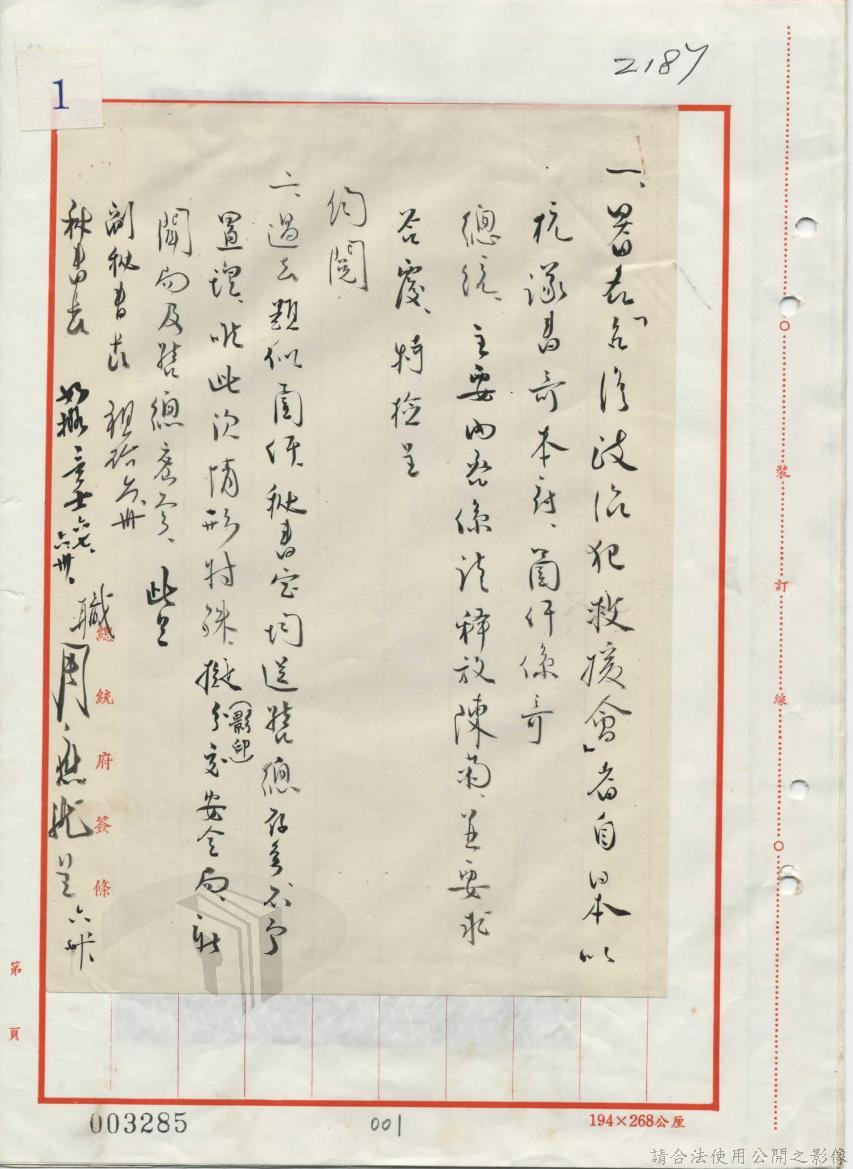 2187
1
一、署名「台灣政治犯救援會」者自日本以
抗議書寄本府、箇件係寄
總統、主要內容係請釋放陳菊、並要求
答覆、特檢呈
鈞閱
二、過去類似函件、秘書室均送 總 存參不予
置理、唯此次情形特殊、擬(影印)分交安全局、新
聞局及 總 參、此呈
副秘書長
秘書長 如擬
職 周應龍呈
總統府簽條
裝訂線
第 頁
003285
001
194×268公厘
請合法使用公開之影像